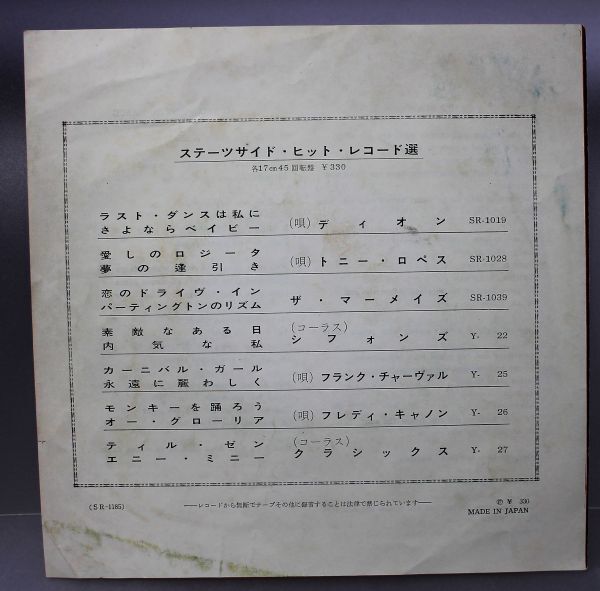 ステーツサイド・ヒット・レコード選
各17cm45回転盤 ¥330
ラスト・ダンスは私に
さよならベイビー
(唄) ディオン SR-1019
愛しのロジータ
夢の逢引き
(唄) トニー・ロペス SR-1028
恋のドライヴ・イン
パーティングトンのリズム
ザ・マーメイズ SR-1039
素敵なある日
内気な私
(コーラス)
シフォンズ Y- 22
カーニバル・ガール
永遠に麗わしく
(唄) フランク・チャーヴァル Y- 25
モンキーを踊ろう
オー・グローリア
(唄) フレディ・キャノン Y- 26
ティル・ゼン
エニー・ミニー
(コーラス)
クラシックス Y- 27
(SR-1185)
──レコードから無断でテープその他に録音することは法律で禁じられています──
℗ ¥ 330
MADE IN JAPAN